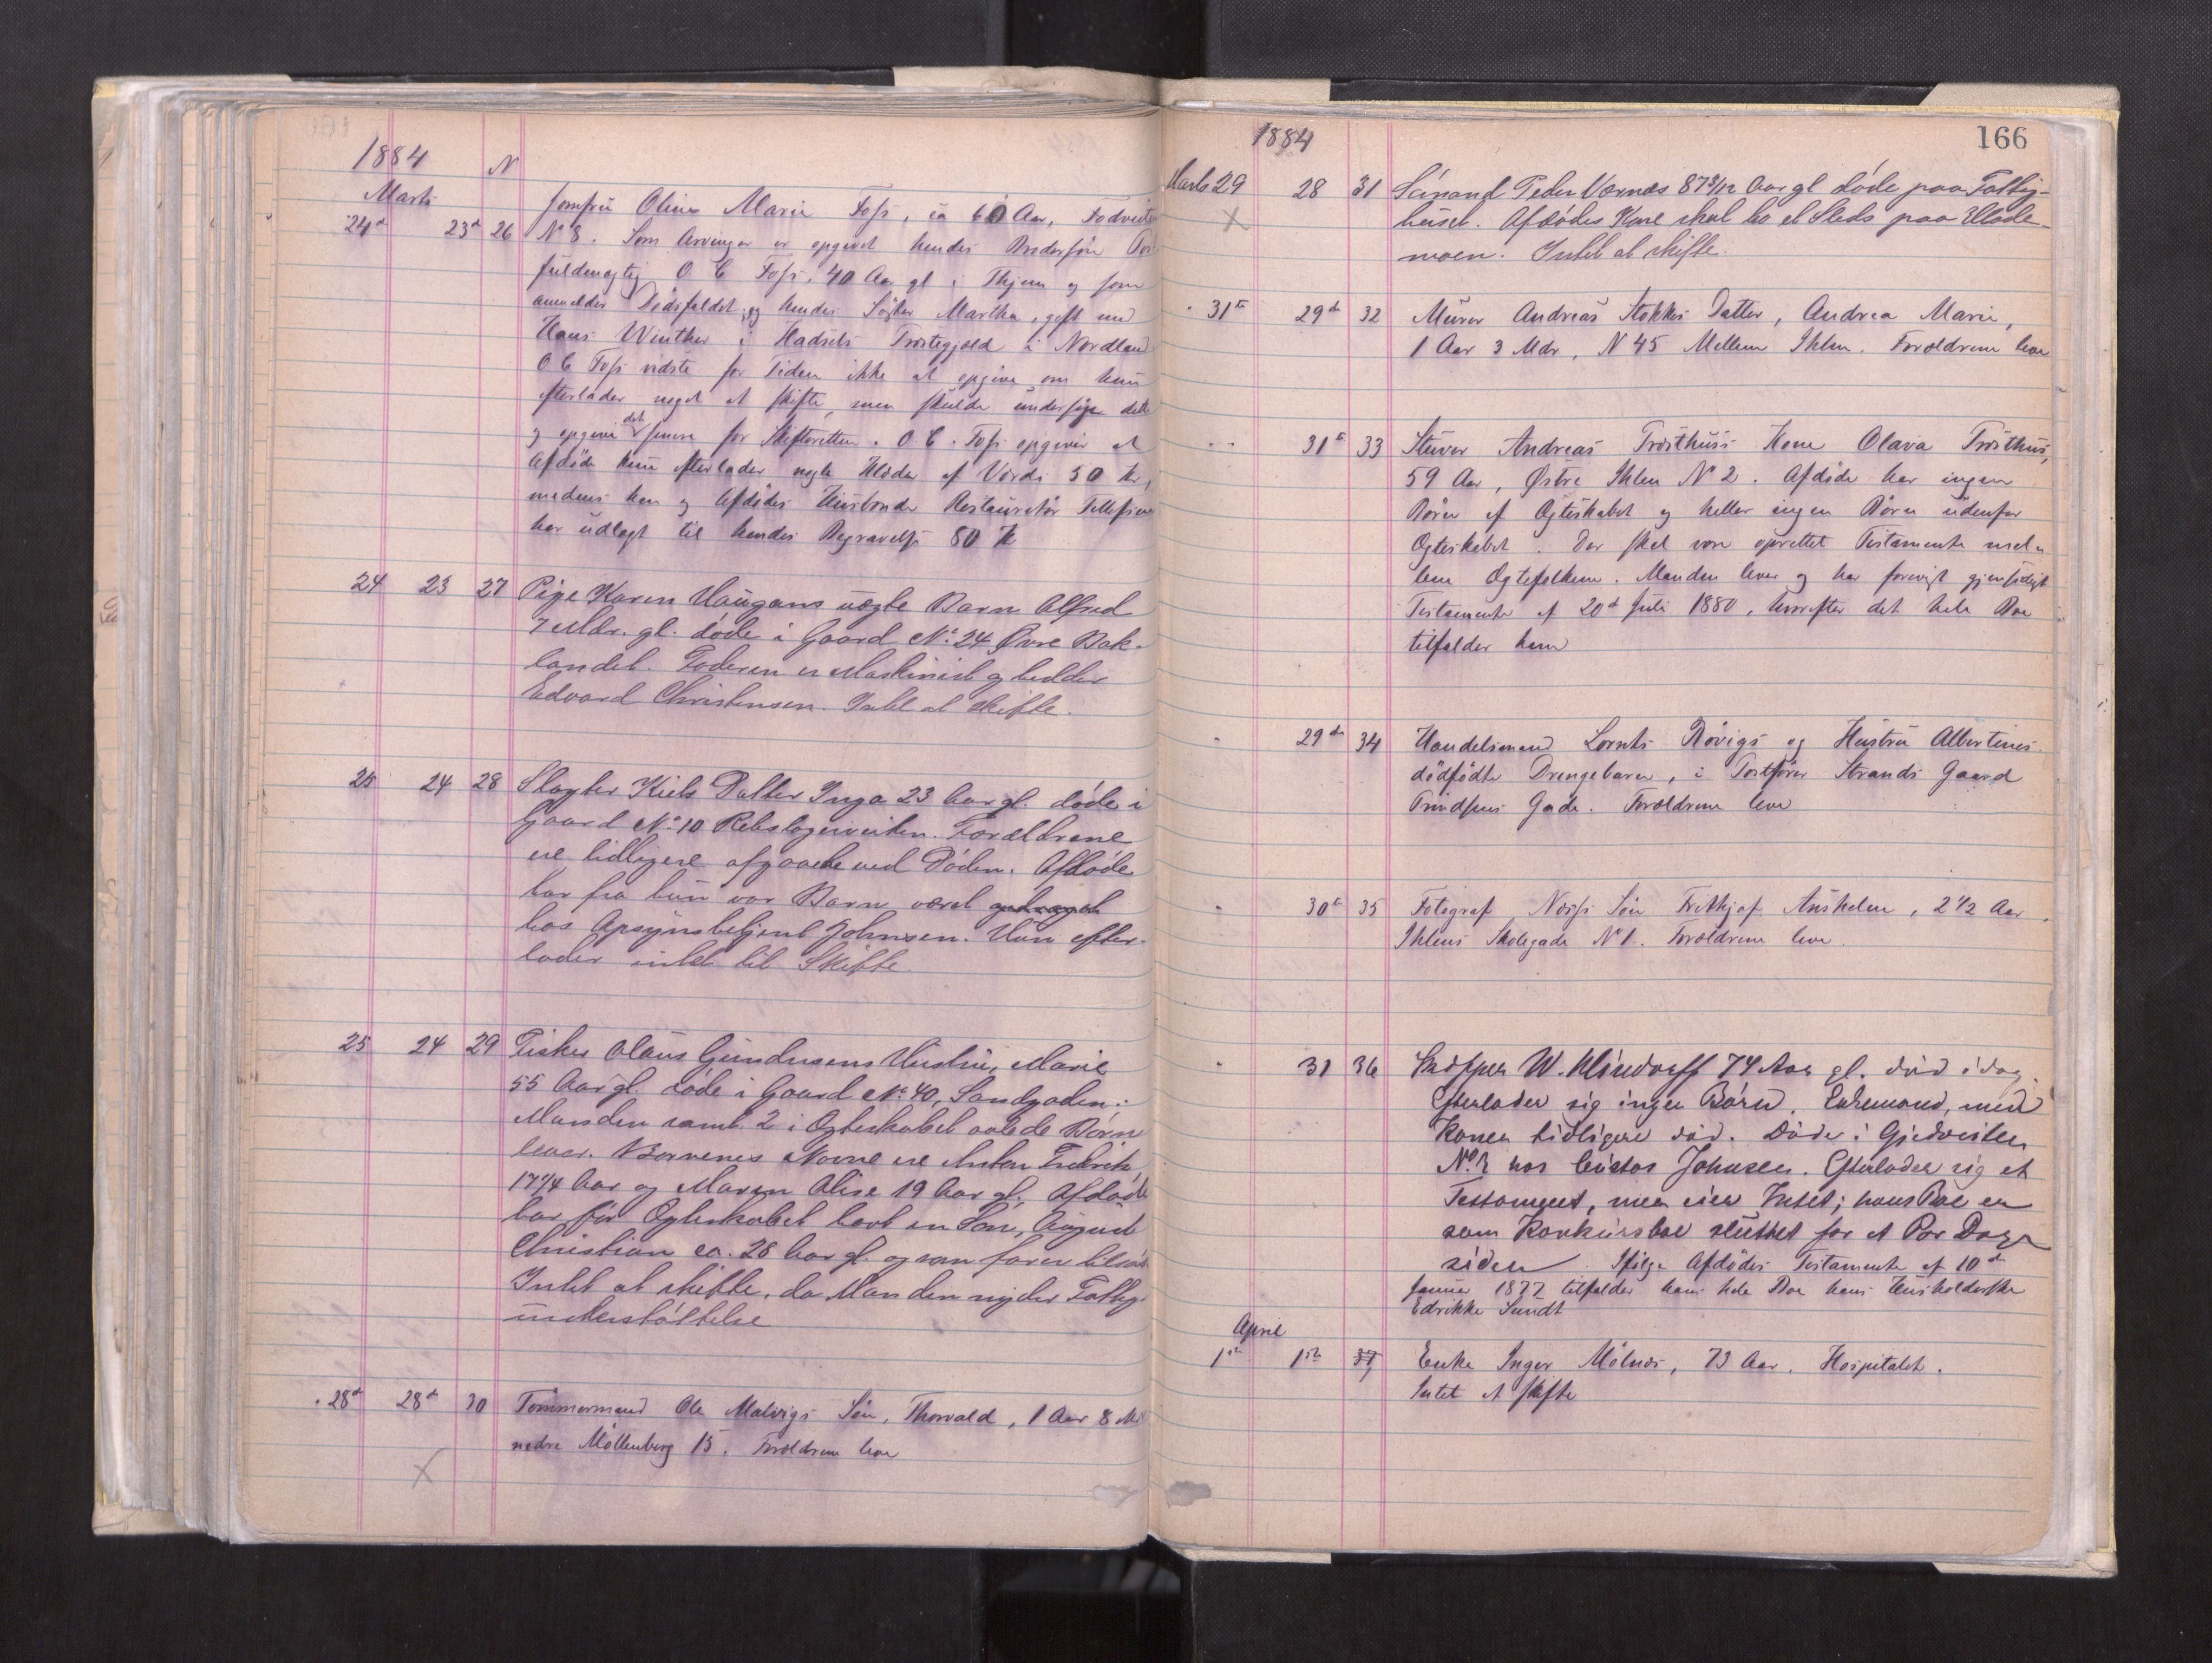 1884
N
Marts
Jomfru Olina Marie Foss, ca 60 Aar, Fodveita
24de 23de 26 No 8. Som Arvinger er opgivet hendes Brodersøn
fuldmægtig O. C Foss, 40 Aar gl i Thjem og som
anmelder Dødsfaldet, og hendes Søster Martha, gift med
Hans Winther i Hadsels Præstegjæld i Nordland
O C Foss vidste for Tiden ikke at opgive om hun
efterlader noget at skifte, men skulde undersøge dette
og opgive det senere for Skifteretten. O C. Foss opgiver at
Afdøde kun efterlader nogle Klæder af Værdi 50 Kr,
medens han og Afdødes Husbonde Restauratør Tellefsen
har udlagt til hendes Begravelse 80 Kr
24 23 27 Pige Karen Haugans uægte Barn Alfred
7 Mdr. gl. døde i Gaard No. 24 Øvre Bak-
landet. Faderen er Maskinist og hedder
Edvard Christensen. Intet at skifte.
25 24 28 Slagter Kiels Datter Inga 23 Aar gl. døde i
Gaard No. 10 Rebslagerveiten. Forældrene
ere tidligere afgaaede ved Døden. Afdøde
har fra hun var Barn været
hos Opsynsbetjent Johnsen. Hun efter-
lader intet til Skifte
25 24 29 Fisker Olaus Gundersens Hustru, Marie
55 Aar gl. døde i Gaard No. 40, Sandgaden.
Manden samt 2 i Ægteskabet avlede Børn
lever. Børnenes Navne ere Anton Fredrik
17 1/4 Aar og Maren Oline 19 Aar gl. Afdøde
har før Ægteskabet havt en Søn, August
Christian ca. 28 Aar gl. og som farer tilsøs.
Intet at skifte, da Manden nyder Fattig-
understøttelse
28de 28de 30 Tømmermand Ole Malvigs Søn, Thorvald, 1 Aar 8 Md
nedre Møllenberg 15. Forældrene leve
1884
166
Marts 29 28 31 Sømand Peder Værnes 87 9/12 Aar gl døde paa Fattig-
huset. Afdødes Kone skal bo et Steds paa Ellade-
moen. Intet at skifte.
31te 29de 32 Murer Andreas Stokkes Datter, Andrea Marie,
1 Aar 3 Mdr, N 45 Mellem Ihlen. Forældrene leve
31te 33 Stuver Andreas Trøsthus's Kone Olava Trøsthus,
59 Aar, Østre Ihlen No 2. Afdøde har ingen
Børn af Ægteskabet og heller ingen Børn udenfor
Ægteskabet. Der skal være oprettet Testamente mel-
lem Ægtefolkene. Manden lever og har forevist gjensidigt
Testamente af 20de Juli 1880, hvorefter det hele Boe
tilfalder ham
29de 34 Handelsmand Lornts Røvigs og Hustru Albertines
dødfødte Drengebarn, i Postfører Strands Gaard
Prindsens Gade. Forældrene leve
30te 35 Fotograf Næss's Søn Frithjof Anshelm, 2 1/2 Aar
Ihlens Skolegade No 1. Forældrene leve.
31 36 Skipper W. Klindorff 74 Aar gl. død idag.
Efterlader sig ingen Børn. Enkemand, med
Konen tidligere død. Døde i Gjedveiten
No. 2 hos Custos Johnsen. Efterlader sig et
Testament, men eier Intet; hans Boe er
som Konkursboe sluttet for et Par Dage
siden. Ifølge Afdødes Testamente af 10de
Januar 1872 tilfalder hans hele Boe hans Husholderske
Edrikke Sundt
April
1ste 1ste 37 Enke Inger Mølnes, 73 Aar. Hospitalet.
Intet at skifte